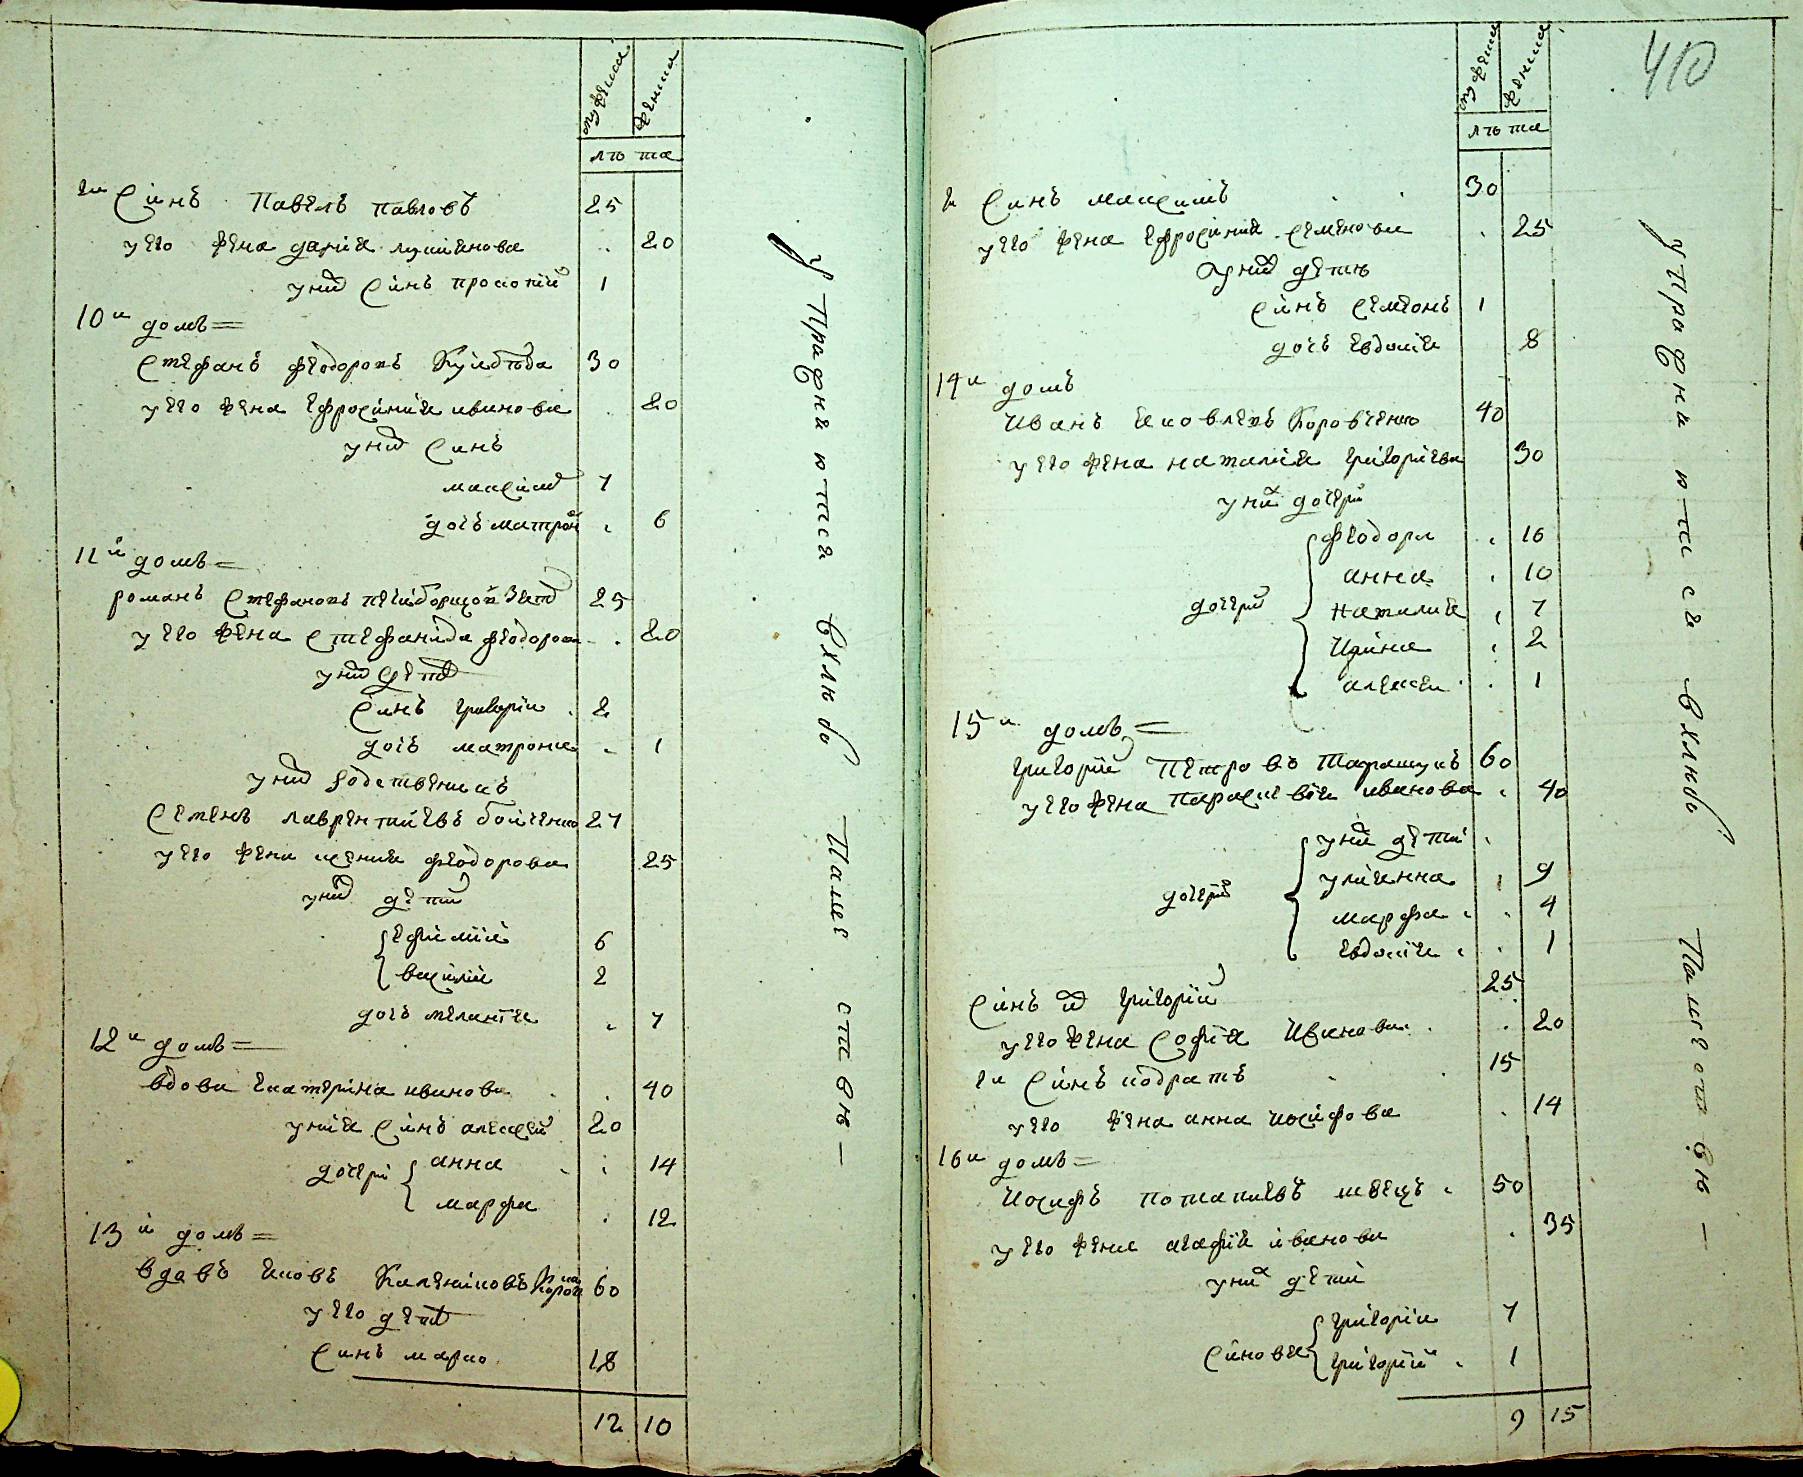 мужеска женска
лѣта
2й Синъ Павелъ павловъ 25
у его жена дария 20
у них Синъ прокопий 1
10й домъ=
Стефанъ феодоровъ 30
у его жена ефросиния иванова 20
у них Синъ
максим 7
дочь матрона 6
11й домъ=
романъ Стефановъ 25
у его жена Стефанида феодорова 20
у них дети
Синъ григорий 2
дочь матрона 1
у них родственикъ
Семенъ лаврентиевъ бойченко 27
у его жена ксения феодорова 25
у них дети
ефимий 6
василий 2
дочь мелания 7
12й домъ=
вдова екатерина иванова 40
у нияя Синъ алексей 20
дочери анна 14
марфа 12
13й домъ=
вдовъ яковъ Калениковъ 60
у его дети
Синъ марко 18
12 10
У Пражнаются Вхлѣбо Пашествѣ—
410
мужеска женска
лѣта
2 Синъ максимъ 30
у его жена ефросиния семенова 25
у них дети
Синъ Семіонъ 1
дочь евдокия 8
14й домъ
Иванъ яковлевъ Коровченко 40
у его жена наталия григориева 30
у них дочери
дочери феодора 16
анна 10
наталия 7
Ирина 2
алекси 1
15й домъ=
григорий Петровъ Таращукъ 60
у его жена параскевия иванова 40
у них дети
дочери улиянна 9
марфа 4
евдокия 1
Синъ григорий 25
у его жена София Иванова 20
2й Синъ кодратъ 15
у его жена анна иосифова 14
16й домъ=
Иосифъ потапиевъ швецъ 50
у его жена агафия иванова 35
у них дети
Синовья григорий 7
григорий 1
9 15
У Пражнаются Вхлѣбо Пашествѣ—